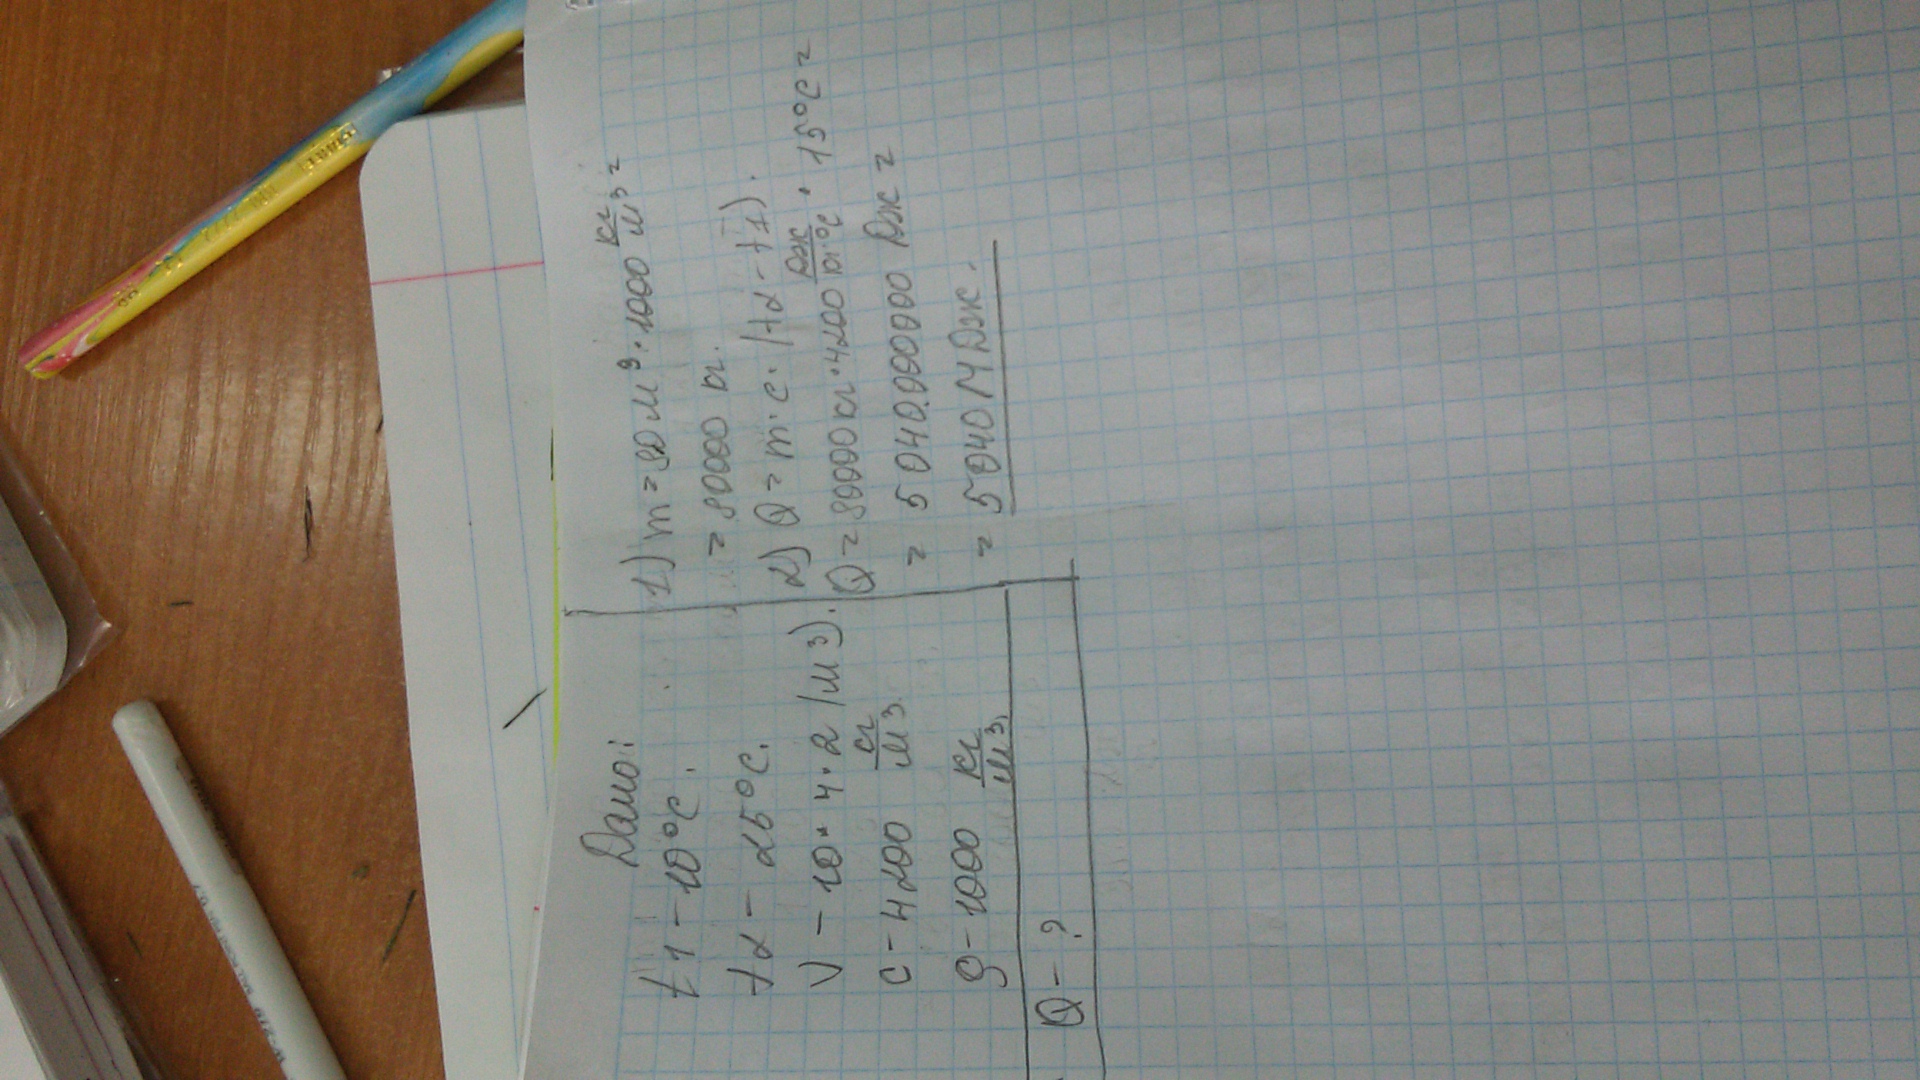 Дано:
t1 - 10°C.
t2 - 25°C.
V - 10*4*2 (м3).
c - 4200 кг/м3
g - 1000 кг/м3.
Q - ?
1) m = 80 м3 · 1000 кг/м3 =
= 80000 кг.
2) Q = m·c·(t2 - t1).
Q = 80000 кг · 4200 Дж/кг·°C · 15°C =
= 5 040.000000 Дж =
= 5 040 МДж.